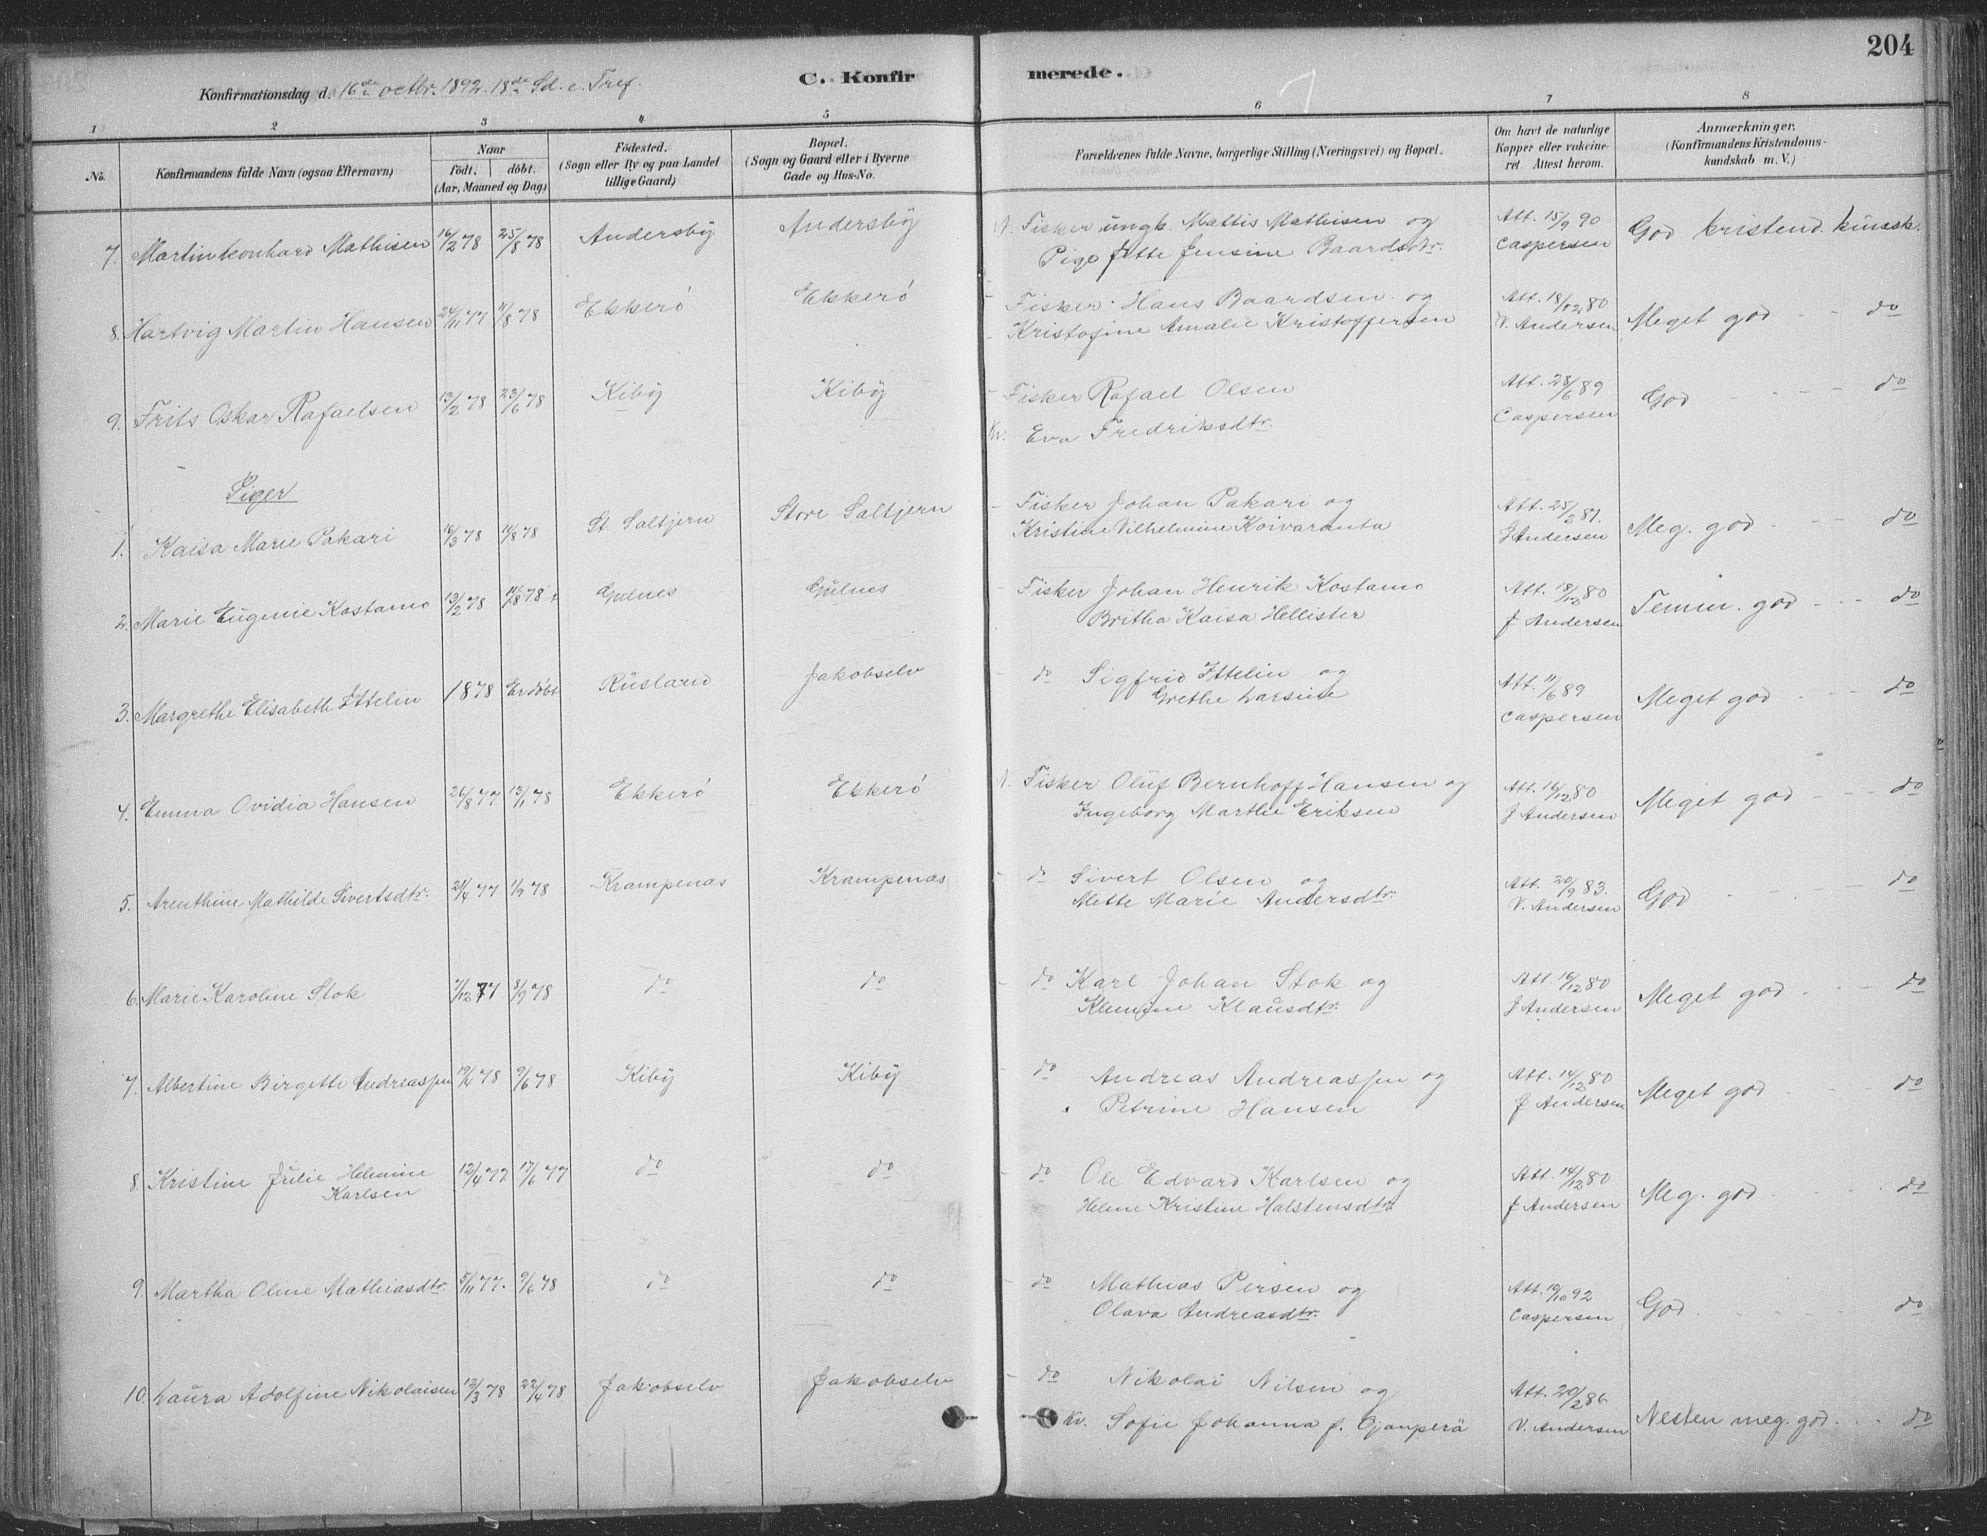 204
C. Konfirmerede.
Konfirmationsdag d. 16de octbr. 1892. 18de Sd. e. Tref.
1 2 3 4 5 6 7 8
No. Konfirmandens fulde Navn (ogsaa Efternavn) Naar født. døbt. (Aar, Maaned og Dag) Fødested. (Sogn eller By og paa Landet tillige Gaard) Bopæl. (Sogn og Gaard eller i Byerne Gade og Hus-No. Forældrenes fulde Navne, borgerlige Stilling (Næringsvei) og Bopæl. Om havt de naturlige Kopper eller vakcineret. Attest herom. Anmærkninger. (Konfirmandens Kristendomskundskab m. V.)
7. Martin Leonhard Mathisen 16/2 78 25/8 78 Andersby Andersby N. Fisker ungk. Mattis Mathisen og Att. 15/9 90 God kristend. kunsk.
Pige Jette Jensine Baardsdtr. Caspersen
8. Hartvig Martin Hansen 24/11 77 11/8 78 Ekkerö Ekkerö - Fisker Hans Baardsen og Att. 18/12 80 Meget god - - do
Kristofine Amalie Kristoffersen V. Andersen
9. Frits Oskar Rafaelsen 13/2 78 23/6 78 Kiby Kiby - Fisker Rafael Olsen Att. 28/6 89 God - - - - do
Kv. Eva Fredriksdtr. Caspersen
Piger
1. Kaisa Marie Pakari 16/3 78 11/8 78 St. Saltjern Store Saltjern - Fisker Johan Pakari og Att. 25/2 81. Meg. god - - - do
Kristine Vilhelmine Koivaranta J Andersen
2. Marie Eugenie Kostamo 13/2 78 11/8 78 Gulnes Gulnes - Fisker Johan Henrik Kostamo Att. 18/12 80 Temm. god - - - do
Britha Kaisa Hellister J Andersen
3. Margrethe Elisabeth Ittelin 1878 Er döbt Rusland Jakobselv do Sigfrid Ittelin og Att. 11/6 89 Meget god - - - do
Grethe Larsine Caspersen
4. Emma Ovidia Hansen 26/8 77 13/1 78 Ekkerö Ekkerö N. Fisker Oluf Bernhoff Hansen og Att. 16/12 80 Meget god - - - do
Ingeborg Marthe Eriksen J Andersen
5. Arenthine Mathilde Sivertsdtr. 21/4 77 1/9 78 Krampenæs Krampenæs - do Sivert Olsen og Att. 20/9 83. God - - - - do
Mette Marie Andersdtr. V. Andersen
6. Marie Karoline Stok 7/12 77 8/9 78 do do - do Karl Johan Stok og Att. 16/12 80 Meget god - - - do
Klemine Klausdtr. J Andersen
7. Albertine Birgette Andreassen 19/4 78 9/6 78 Kiby Kiby - do Andreas Andreassen og Att. 14/12 80 Meget god - - do
Petrine Hansen J Andersen
8. Kristine Julie Helmine 12/4 77 17/6 77 do do - do Ole Edvard Karlsen og Att. 14/12 80 Meg. god - - - do
Karlsen Helene Kristine Halstensdtr. J Andersen
9. Martha Oline Mathiasdtr. 5/11 77. 9/6 78 do do - do Mathias Persen og Att. 10/10 92 God - - - - do
Olava Andreasdtr. Caspersen
10. Laura Adolfine Nikolaisen 12/3 78 22/4 78 Jakobselv Jakobselv - do Nikolai Nilsen og Att. 20/2 86 Nesten meg. god. - - do
Kv. Sofie Johanna f. Ojanperä V. Andersen